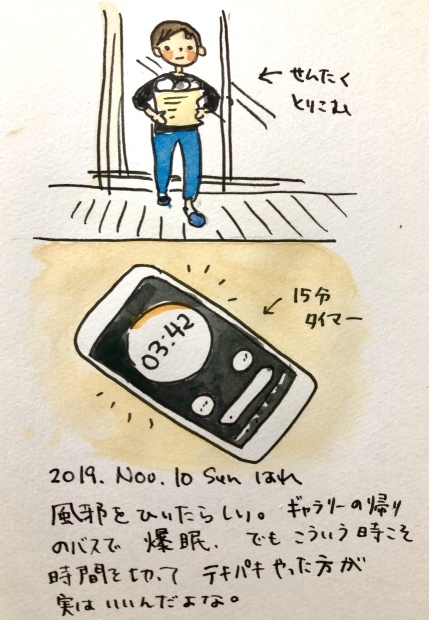 ← せんたく
とりこむ
← 15分
タイマー
03:42
2019. Nov. 10 Sun はれ
風邪をひいたらしい。ギャラリーの帰り
のバスで 爆眠. でもこういう時こそ
時間を切って テキパキやった方が
実はいいんだよな。